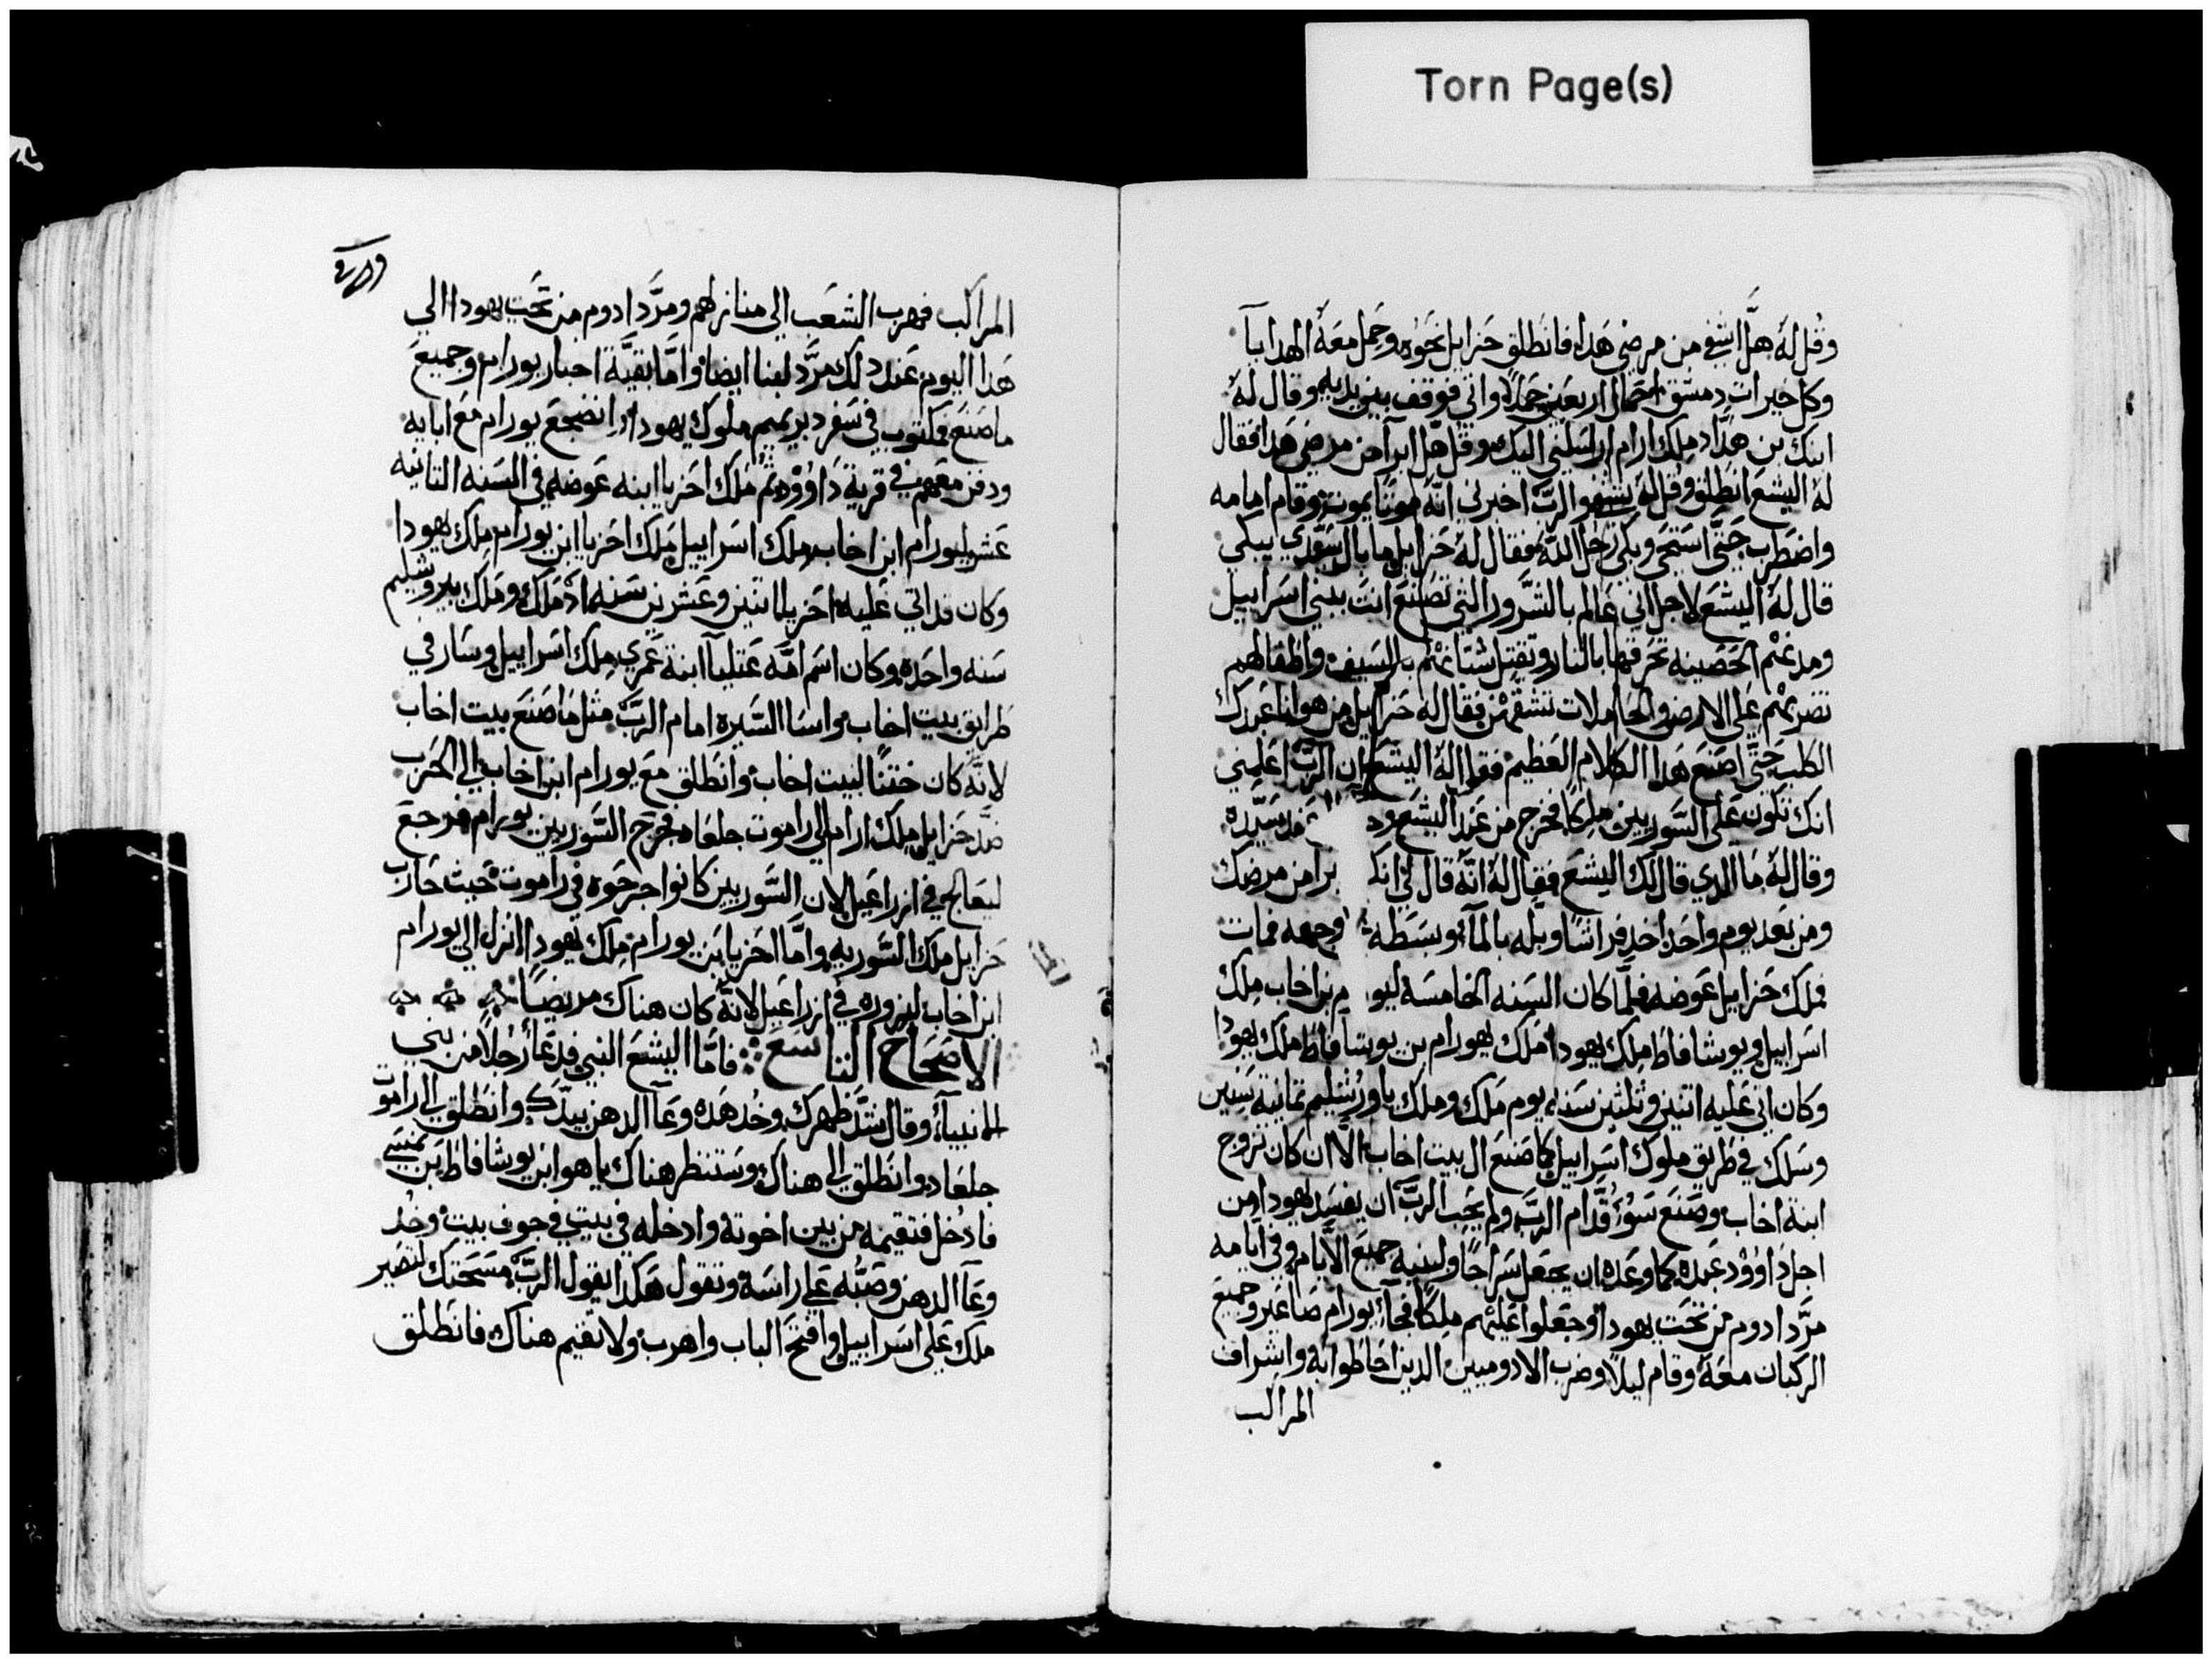 Torn Page(s)
وقل له هل اشفي من مرضي هدا فانطلق حزاييل نحوه وحمل معه الهدايا
وكل خيرات دمشق احمال اربعين جملا واتي فوقف بين يديه وقال له
ابنك بن هداد ملك ارام ارسلني اليك وقل هل ابرآ من مرضي هدا فقال
له اليشع انطلق وقل له يشفو الرب اخبرني انه موتا يموت وقام امامه
واضطرب حتي استحي وبكي رجل الله فقال له حزاييل ما بال سيدي يبكي
قال له اليشع لاجل اني عالم بالشرور التي تصنع انت ببني اسراييل
ومدنهم الحصينه تحرقها بالنار وتقتل شبانهم بالسيف واطفالهم
تضربهم علي الارض والحاملات تشقهن فقال له حزاييل من هو انا عبدك
الكلب حتي اصنع هدا الكلام العظيم فقال له اليشع ان الرب اعلمني
انك تكون علي السوريين ملكا فخرج من عند اليشع سيده
وقال له ما الدي قال لك اليشع فقال له انه قال لي انك برا من مرضك
ومن بعد يوم واحد اخد فراشا وبله بالمآ وبسطه وجهه فمات
فملك حزاييل عوضه فلما كان السنه الخامسه ليو م بن اخاب ملك
اسراييل ويوشافاط ملك يهودا ملك يهورام بن يوشافاط ملك يهودا
وكان اتي عليه اتنين وثلثين سنه يوم ملك وملك باورشليم تمانية سنين
وسلك في طريق ملوك اسراييل كما صنع ال بيت اخاب الا ان كان تزوج
ابنة اخاب وصنع سؤ قدام الرب ولم يحب الرب ان يفسد يهودا من
اجل داوود عبده كما وعده ان يجعل سراجا ولبنيه جميع الايام وفي ايامه
مرد ادوم من تحت يهودا وجعلوا عليهم ملكا فجآ يورام صاعير وجميع
الركبان معه وقام ليلا وضرب الادوميين الدين احاطوا به واشراف
المراكب
المراكب فهرب الشعب الي منازلهم ومرد ادوم من تحت يهودا الي
هدا اليوم عند دلك مرد لبنا ايضا واما بقية احبار يورام وجميع
ما صنع مكتوب في سفر دبريميم ملوك يهودا انضجع يورام مع ابايه
ودفن معهم في قرية داوود ثم ملك احزيا ابنه عوضه في السنه التانيه
عشر ليورام ابن اخاب ملك اسراييل ملك احزيا ابن يورام ملك يهودا
وكان قد اتي عليه احزيا اتنين وعشرين سنه اد ملك وملك بيروشليم
سنه واحده وكان اسم امه عتليآ ابنة عمري ملك اسراييل وسار في
طرايق بيت اخاب واسا السيره امام الرب مثل ما صنع بيت اخاب
لانه كان ختنا لبيت اخاب وانطلق مع يورام ابن اخاب الي الحرب
ضد حزاييل ملك ارام الي راموت جلعاد فجرح السوريين يورام فرجع
ليعالج في ازراعيل لان السوريين كانوا جرحوه في راموت حيث حارب
حزاييل ملك السوريه واما احزيا بن يورام ملك يهودا انزل الي يورام
ابن اخاب ليزوره في ازراعيل لانه كان هناك مريضا
الاصحاح التاسع فاما اليشع النبي فدعا رجلا من بني
الانبيآ وقال شد ظهرك وخد هده وعآ الدهن بيدك وانطلق الي راموت
جلعاد وانطلق الي هناك وستنظر هناك ياهو ابن يوشافاط بن نمسي
فادخل فتقيمه من بين اخوته وادخله في بيت في جوف بيت وخد
وعآ الدهن وصبه علي راسه وتقول هكدا يقول الرب مسحتك لتصير
ملك علي اسراييل وافتح الباب واهرب ولا تقيم هناك فانطلق